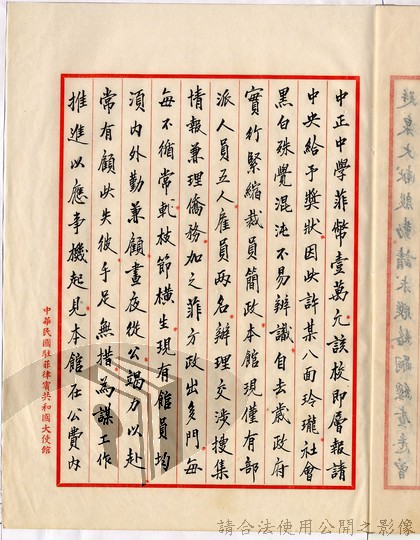 中正中學菲幣壹萬元該校即層報請
中央給予獎狀因此許某八面玲瓏社會
黑白殊覺混沌不易辨識自去歲政府
實行緊縮裁員簡政本館現僅有部
派人員五人雇員兩名辦理交涉搜集
情報兼理僑務加之菲方政出多門每
每不循常軌枝節橫生現有館員均
須內外勤兼顧晝夜從公竭力以赴
常有顧此失彼手足無措為謀工作
推進以應事機起見本館在公費內
中華民國駐菲律賓共和國大使館
請合法使用公開之影像